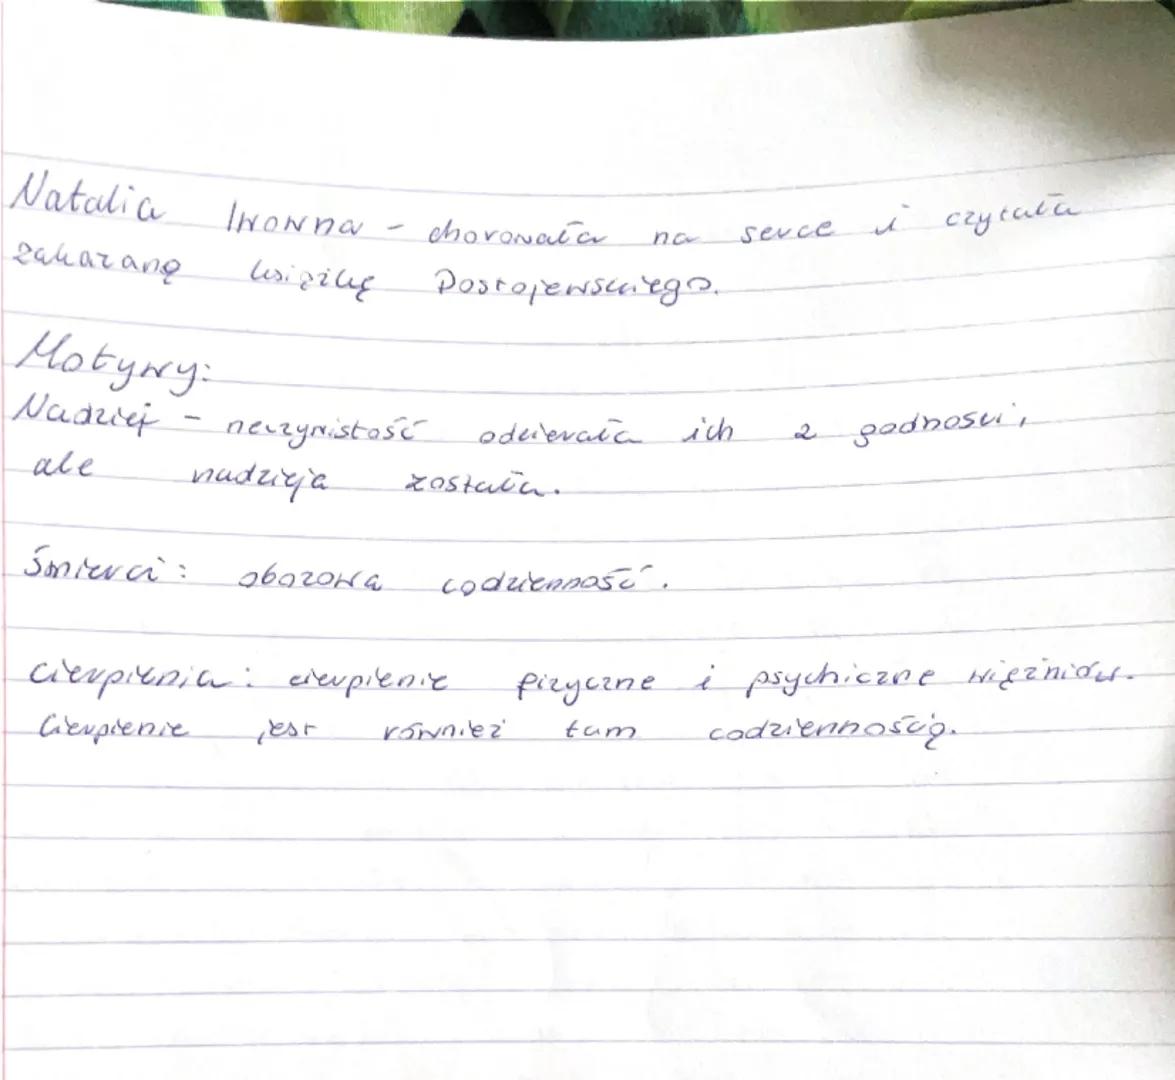 Natalia Iwowna - chorowała na serce i czytała
zakazaną książkę Dostojewskiego.
Motywy:
Nadziej - rzeczywistość odzierała ich z godności,
ale nadzieja została.
Śmierci: obozowa codzienność.
Cierpienia: cierpienie fizyczne i psychiczne więźniów.
Cierpienie jest również tam codziennością.